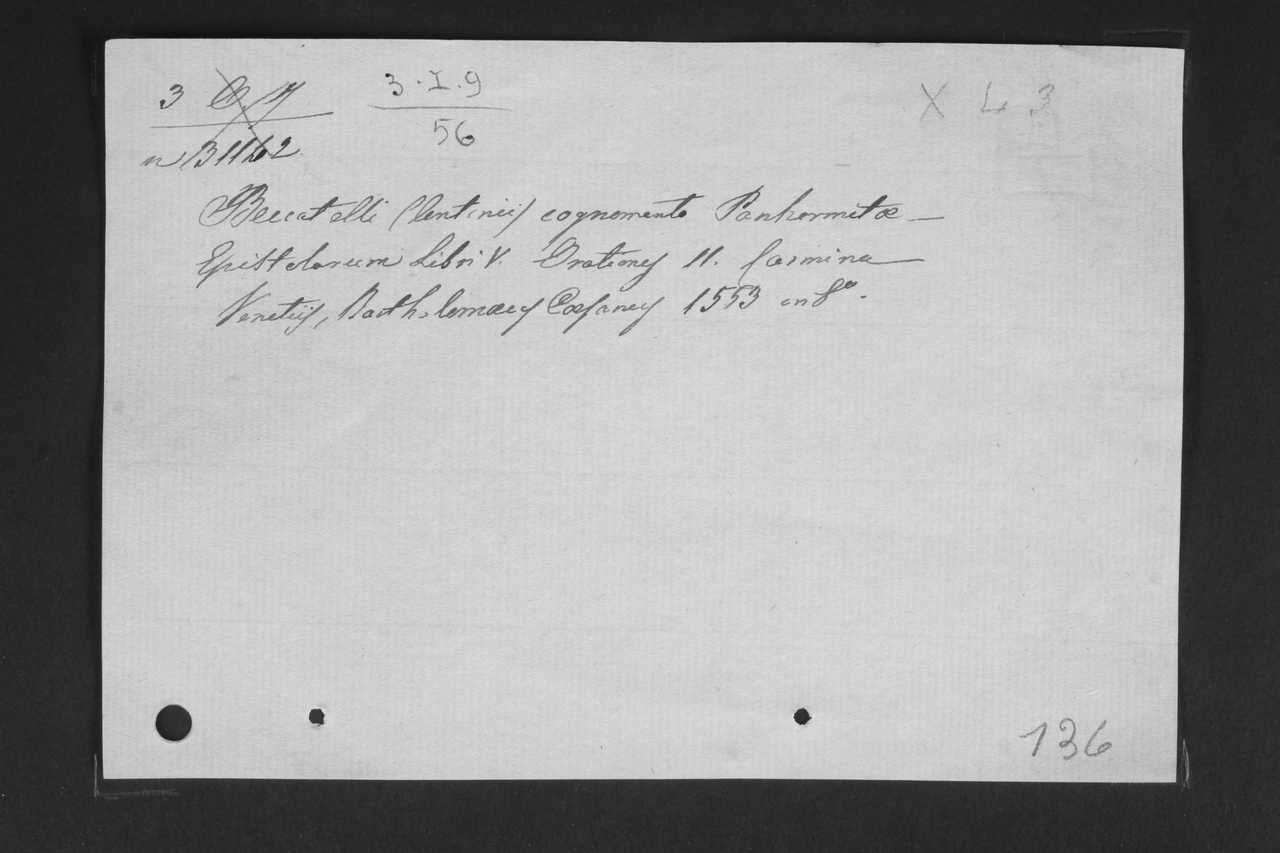 3 3.I.9 X L 3
56
n 31162
Beccatelli (Antonii) cognomento Panhormitæ —
Epistolarum Libri V. Orationes II. Carmina —
Venetijs, Bartholomæus Cæsanus 1553 in 8º.
136